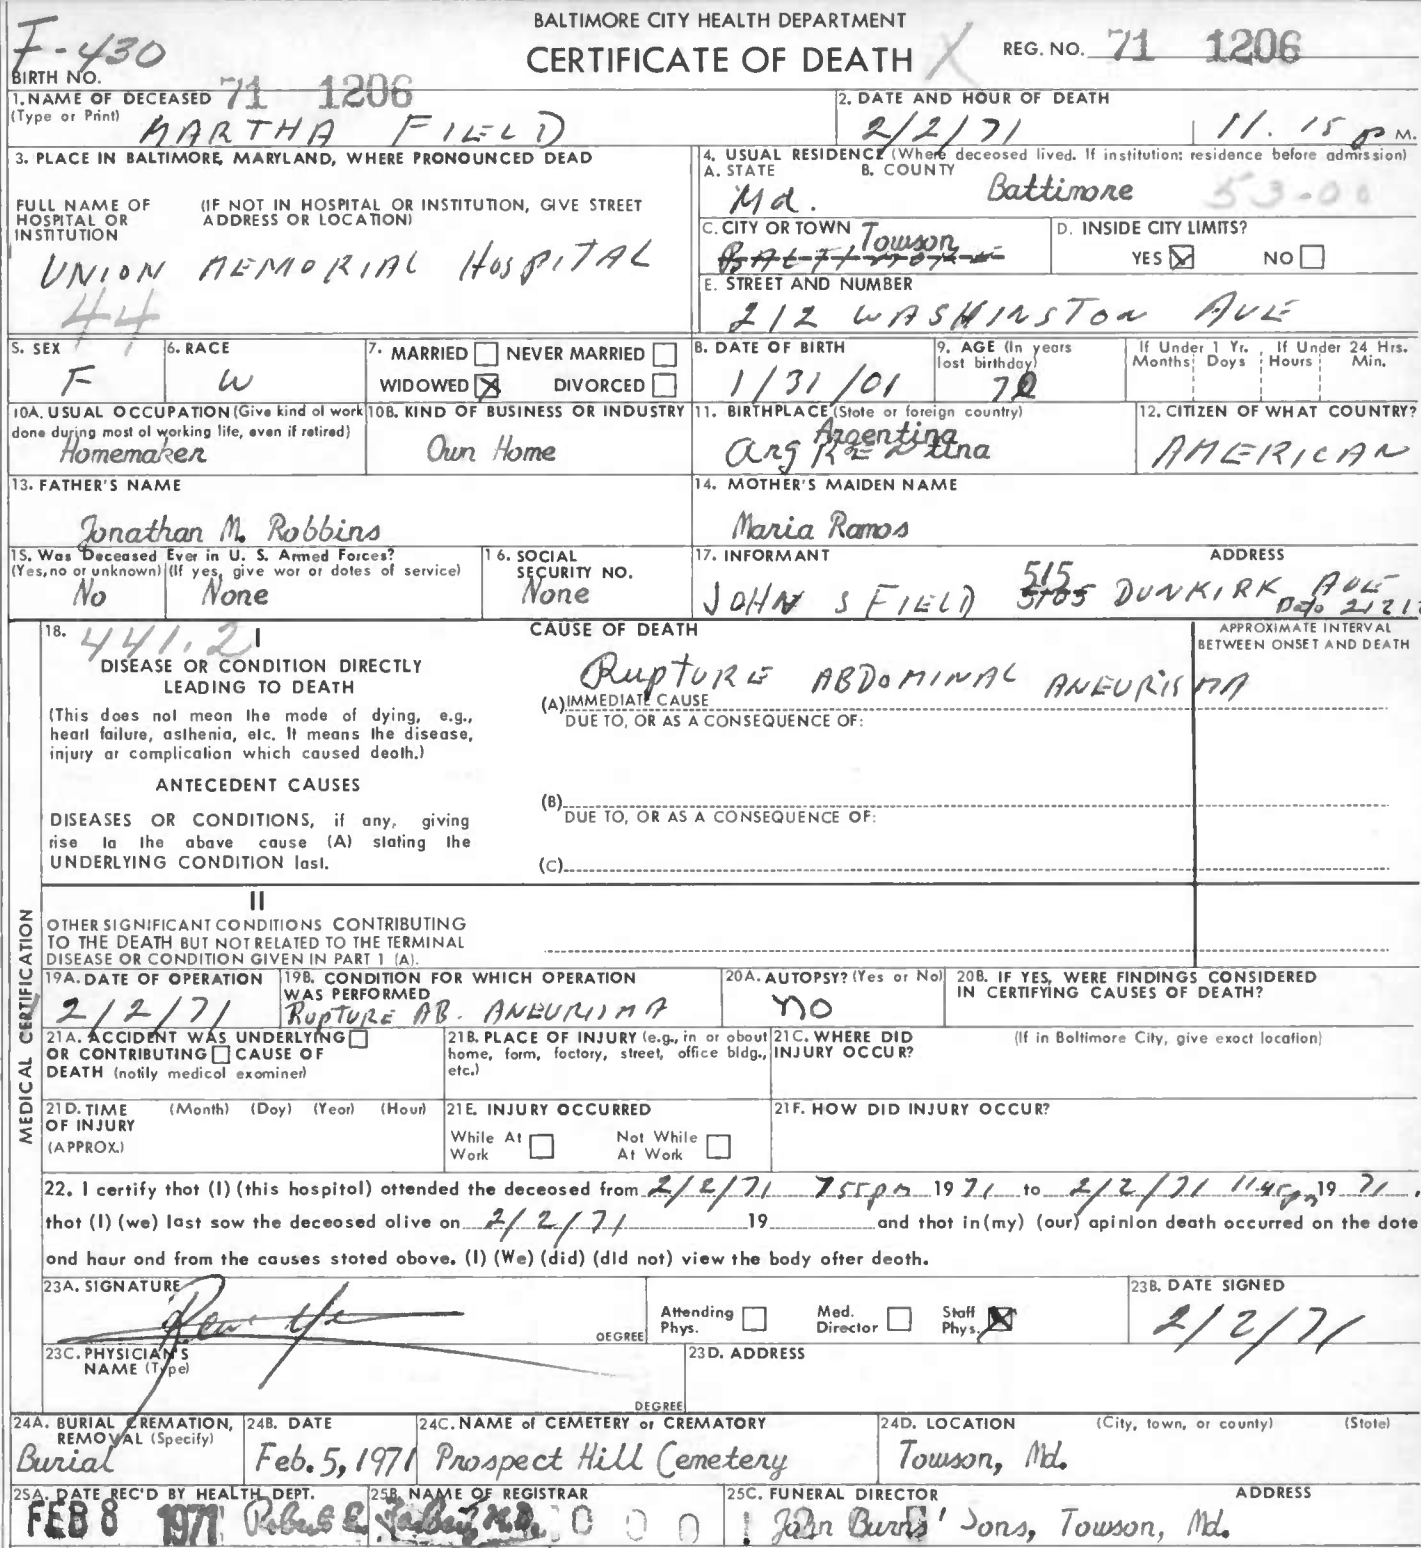 BALTIMORE CITY HEALTH DEPARTMENT
CERTIFICATE OF DEATH X
F-430
REG. NO. 71 1206
BIRTH NO. 71 1206
1. NAME OF DECEASED
(Type or Print) MARTHA FIELD
2. DATE AND HOUR OF DEATH
2/2/71 11.15 P M.
3. PLACE IN BALTIMORE, MARYLAND, WHERE PRONOUNCED DEAD
FULL NAME OF HOSPITAL OR INSTITUTION
(IF NOT IN HOSPITAL OR INSTITUTION, GIVE STREET ADDRESS OR LOCATION)
UNION MEMORIAL HOSPITAL
44
4. USUAL RESIDENCE (Where deceased lived. If institution: residence before admission)
A. STATE B. COUNTY
Md. Baltimore 53-00
C. CITY OR TOWN Towson
BALTIMORE
D. INSIDE CITY LIMITS?
YES NO
E. STREET AND NUMBER
212 WASHINSTON AVE
5. SEX
F
6. RACE
W
7. MARRIED NEVER MARRIED
WIDOWED DIVORCED
8. DATE OF BIRTH
1/31/01
9. AGE (In years last birthday)
70
If Under 1 Yr. If Under 24 Hrs.
Months Days Hours Min.
10A. USUAL OCCUPATION (Give kind of work done during most of working life, even if retired)
Homemaker
10B. KIND OF BUSINESS OR INDUSTRY
Own Home
11. BIRTHPLACE (State or foreign country)
Argentina
ArgRENtina
12. CITIZEN OF WHAT COUNTRY?
AMERICAN
13. FATHER'S NAME
Jonathan M. Robbins
14. MOTHER'S MAIDEN NAME
Maria Ramos
15. Was Deceased Ever in U. S. Armed Forces?
(Yes, no or unknown) (If yes, give war or dates of service)
No None
16. SOCIAL SECURITY NO.
None
17. INFORMANT ADDRESS
JOHN S FIELD 515 5105 DUNKIRK AVE
Balto 21212
18. 441.2
I
DISEASE OR CONDITION DIRECTLY
LEADING TO DEATH
(This does not mean the mode of dying, e.g.,
heart failure, asthenia, etc. It means the disease,
injury or complication which caused death.)
ANTECEDENT CAUSES
DISEASES OR CONDITIONS, if any, giving
rise to the above cause (A) stating the
UNDERLYING CONDITION last.
CAUSE OF DEATH
RUPTURE ABDOMINAL ANEURISMA
(A) IMMEDIATE CAUSE
DUE TO, OR AS A CONSEQUENCE OF:
(B)
DUE TO, OR AS A CONSEQUENCE OF:
(C)
APPROXIMATE INTERVAL
BETWEEN ONSET AND DEATH
MEDICAL CERTIFICATION
II
OTHER SIGNIFICANT CONDITIONS CONTRIBUTING
TO THE DEATH BUT NOT RELATED TO THE TERMINAL
DISEASE OR CONDITION GIVEN IN PART 1 (A).
19A. DATE OF OPERATION
2/2/71
19B. CONDITION FOR WHICH OPERATION
WAS PERFORMED
RUPTURE AB. ANEURISMA
20A. AUTOPSY? (Yes or No)
NO
20B. IF YES, WERE FINDINGS CONSIDERED
IN CERTIFYING CAUSES OF DEATH?
21A. ACCIDENT WAS UNDERLYING
OR CONTRIBUTING CAUSE OF
DEATH (notify medical examiner)
21B. PLACE OF INJURY (e.g., in or about
home, farm, factory, street, office bldg.,
etc.)
21C. WHERE DID
INJURY OCCUR?
(If in Baltimore City, give exact location)
21D. TIME (Month) (Day) (Year) (Hour)
OF INJURY
(APPROX.)
21E. INJURY OCCURRED
While At Work Not While At Work
21F. HOW DID INJURY OCCUR?
22. I certify that (I) (this hospital) attended the deceased from 2/2/71 755pm 19 71 to 2/2/71 1145pm 19 71,
that (I) (we) last saw the deceased alive on 2/2/71 19 and that in (my) (our) opinion death occurred on the date
and hour and from the causes stated above. (I) (We) (did) (did not) view the body after death.
23A. SIGNATURE
DEGREE
Attending Phys. Med. Director Staff Phys.
23B. DATE SIGNED
2/2/71
23C. PHYSICIAN'S
NAME (Type)
DEGREE
23D. ADDRESS
24A. BURIAL, CREMATION,
REMOVAL (Specify)
Burial
24B. DATE
Feb. 5, 1971
24C. NAME of CEMETERY or CREMATORY
Prospect Hill Cemetery
24D. LOCATION (City, town, or county) (State)
Towson, Md.
25A. DATE REC'D BY HEALTH DEPT.
FEB 8 1971
25B. NAME OF REGISTRAR
Robert E. Farber, M.D.
25C. FUNERAL DIRECTOR ADDRESS
John Burns' Sons, Towson, Md.